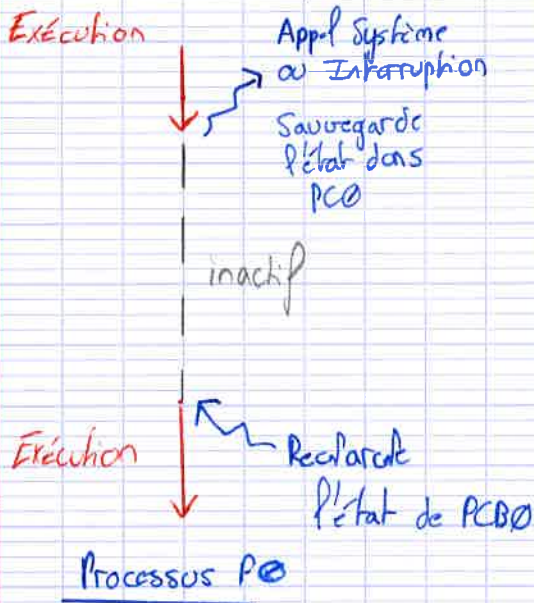 Exécution
Appel Système
ou Interruption
Sauvegarde
l'état dans
PCØ
inactif
Exécution
l'état de PCBØ
Processus PØ